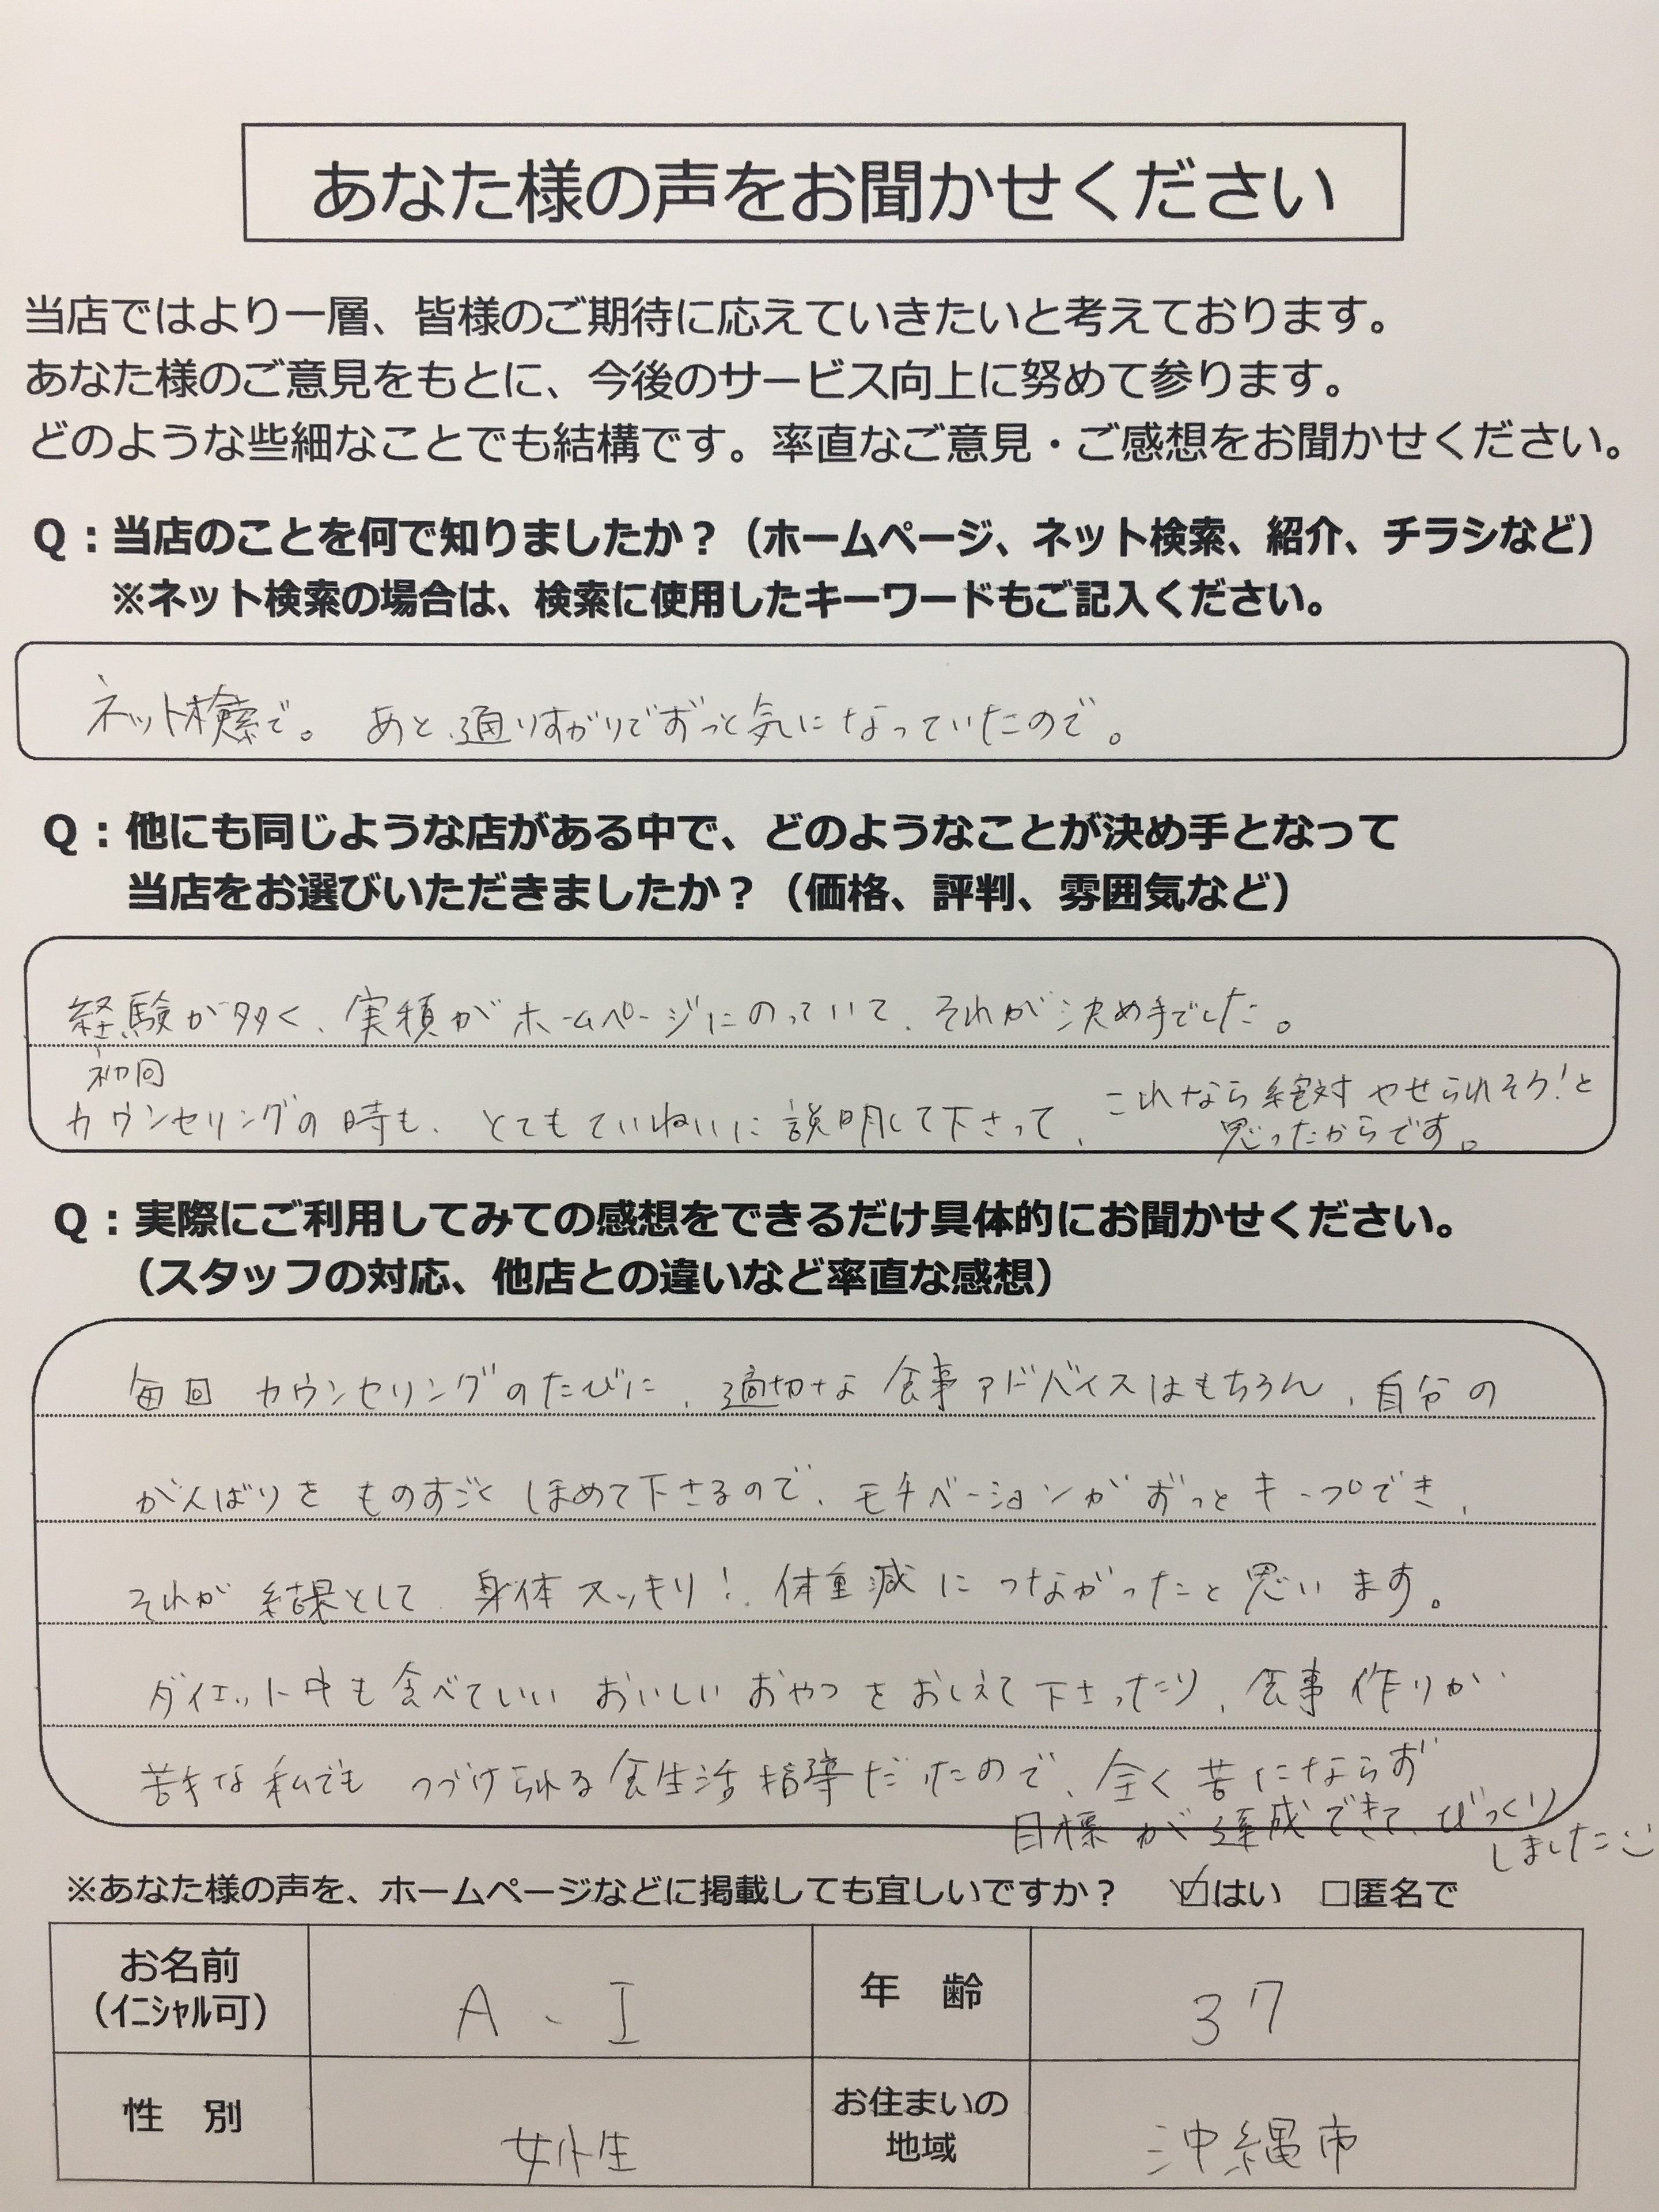 あなた様の声をお聞かせください
当店ではより一層、皆様のご期待に応えていきたいと考えております。
あなた様のご意見をもとに、今後のサービス向上に努めて参ります。
どのような些細なことでも結構です。率直なご意見・ご感想をお聞かせください。
Q：当店のことを何で知りましたか？（ホームページ、ネット検索、紹介、チラシなど）
※ネット検索の場合は、検索に使用したキーワードもご記入ください。
ネット検索で。あと、通りすがりでずっと気になっていたので。
Q：他にも同じような店がある中で、どのようなことが決め手となって
当店をお選びいただきましたか？（価格、評判、雰囲気など）
経験が多く、実積がホームページにのっていて、それが決め手でした。
初回
カウンセリングの時も、とてもていねいに説明して下さって、これなら絶対やせられそう！と
思ったからです。
Q：実際にご利用してみての感想をできるだけ具体的にお聞かせください。
（スタッフの対応、他店との違いなど率直な感想）
毎回カウンセリングのたびに、適切な食事アドバイスはもちろん、自分の
がんばりをものすごくほめて下さるので、モチベーションがずっとキープでき、
それが結果として、身体スッキリ！体重減につながったと思います。
ダイエット中も食べていいおいしいおやつをおしえて下さったり、食事作りが
苦手な私でもつづけられる食生活指導だったので、全く苦にならず
目標が達成できて、びっくり
しました
※あなた様の声を、ホームページなどに掲載しても宜しいですか？ ☑はい □匿名で
お名前 A、I 年 齢 37
（ｲﾆｼｬﾙ可）
性 別 女性 お住まいの 沖縄市
地域